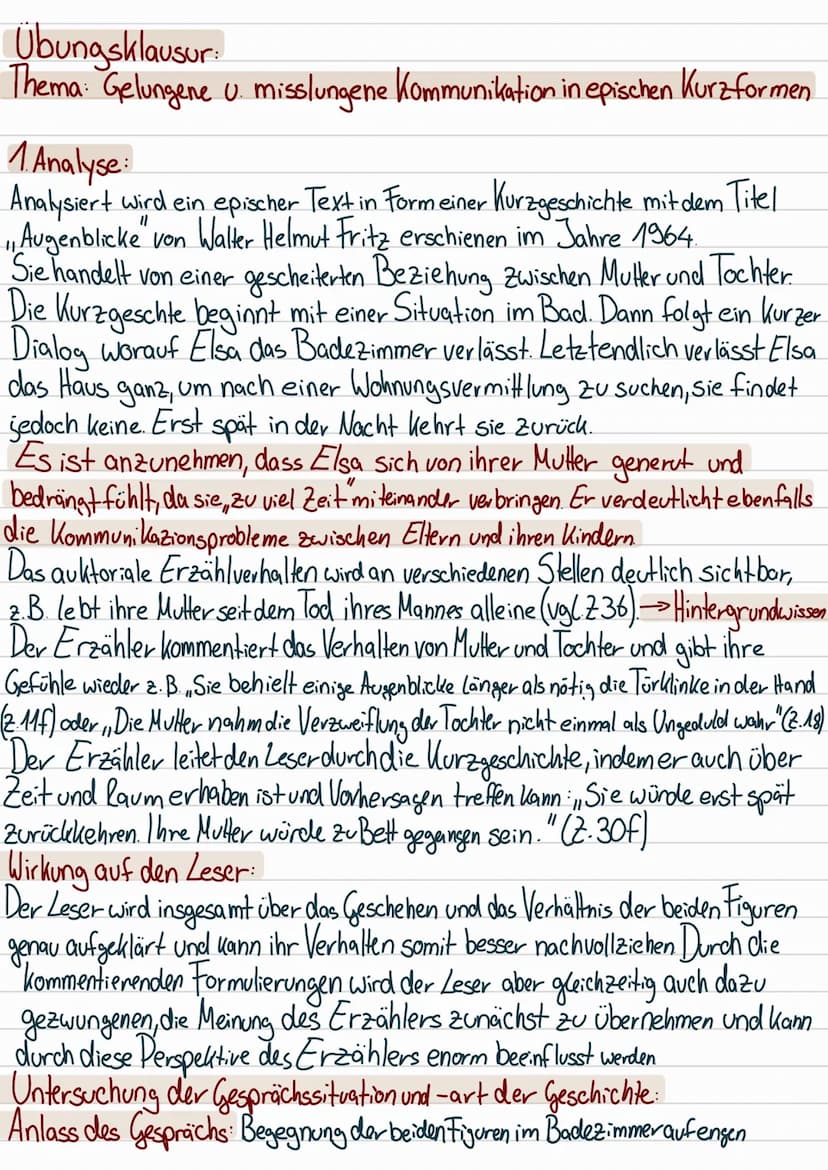 Übungsklausur:
Thema: Gelungene u. misslungene Kommunikation in epischen Kurzformen
1. Analyse:
Analysiert wird ein epischer Text in Form einer Kurzgeschichte mit dem Titel
„Augenblicke" von Walter Helmut Fritz erschienen im Jahre 1964.
Sie handelt von einer gescheiterten Beziehung zwischen Mutter und Tochter.
Die Kurzgeschte beginnt mit einer Situation im Bad. Dann folgt ein kurzer
Dialog worauf Elsa das Badezimmer verlässt. Letztendlich verlässt Elsa
das Haus ganz, um nach einer Wohnungsvermittlung zu suchen, sie findet
jedoch keine. Erst spät in der Nacht kehrt sie zurück.
Es ist anzunehmen, dass Elsa sich von ihrer Mutter generut und
bedrängt fühlt, da sie „zu viel Zeit" miteinander verbringen. Er verdeutlicht ebenfalls
die Kommunikazionsprobleme zwischen Eltern und ihren Kindern
Das auktoriale Erzählverhalten wird an verschiedenen Stellen deutlich sichtbar,
z.B. lebt ihre Mutter seit dem Tod ihres Mannes alleine (vgl. Z 36). → Hintergrundwissen
Der Erzähler kommentiert das Verhalten von Mutter und Tochter und gibt ihre
Gefühle wieder z.B. „Sie behielt einige Augenblicke länger als nötig die Türklinke in der Hand
(Z. 11f) oder „Die Mutter nahm die Verzweiflung der Tochter nicht einmal als Ungeduld wahr" (Z. 18)
Der Erzähler leitet den Leser durch die Kurzgeschichte, indem er auch über
Zeit und Raum erhaben ist und Vorhersagen treffen kann: „Sie würde erst spät
zurückkehren. Ihre Mutter würde zu Bett gegangen sein." (Z. 30f)
Wirkung auf den Leser:
Der Leser wird insgesamt über das Geschehen und das Verhältnis der beiden Figuren
genau aufgeklärt und kann ihr Verhalten somit besser nachvollziehen Durch die
kommentierenden Formulierungen wird der Leser aber gleichzeitig auch dazu
gezwungenen, die Meinung des Erzählers zunächst zu übernehmen und kann
durch diese Perspektive des Erzählers enorm beeinflusst werden
Untersuchung der Gesprächssituation und -art der Geschichte:
Anlass des Gesprächs: Begegnung der beiden Figuren im Badezimmer auf engen